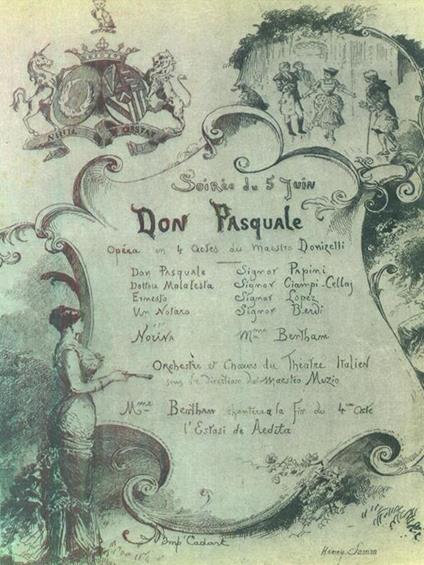 NIHIL OBSTAT
Soirée du 5 Juin
DON PASQUALE
Opéra en 4 Actes du Maestro Donizetti
Don Pasquale Signor Papini
Dottor Malatesta Signor Ciampi-Cellaj
Ernesto Signor Lopez
Un Notaro Signor Berdi
Norina Mme Bentham
Orchestre et Chœurs du Théatre Italien
sous la direction du Maestro Muzio
Mme Bentham chantera à la Fin du 4me Acte
l'Estasi de Ardita
Imp Cadart
Henry Somm